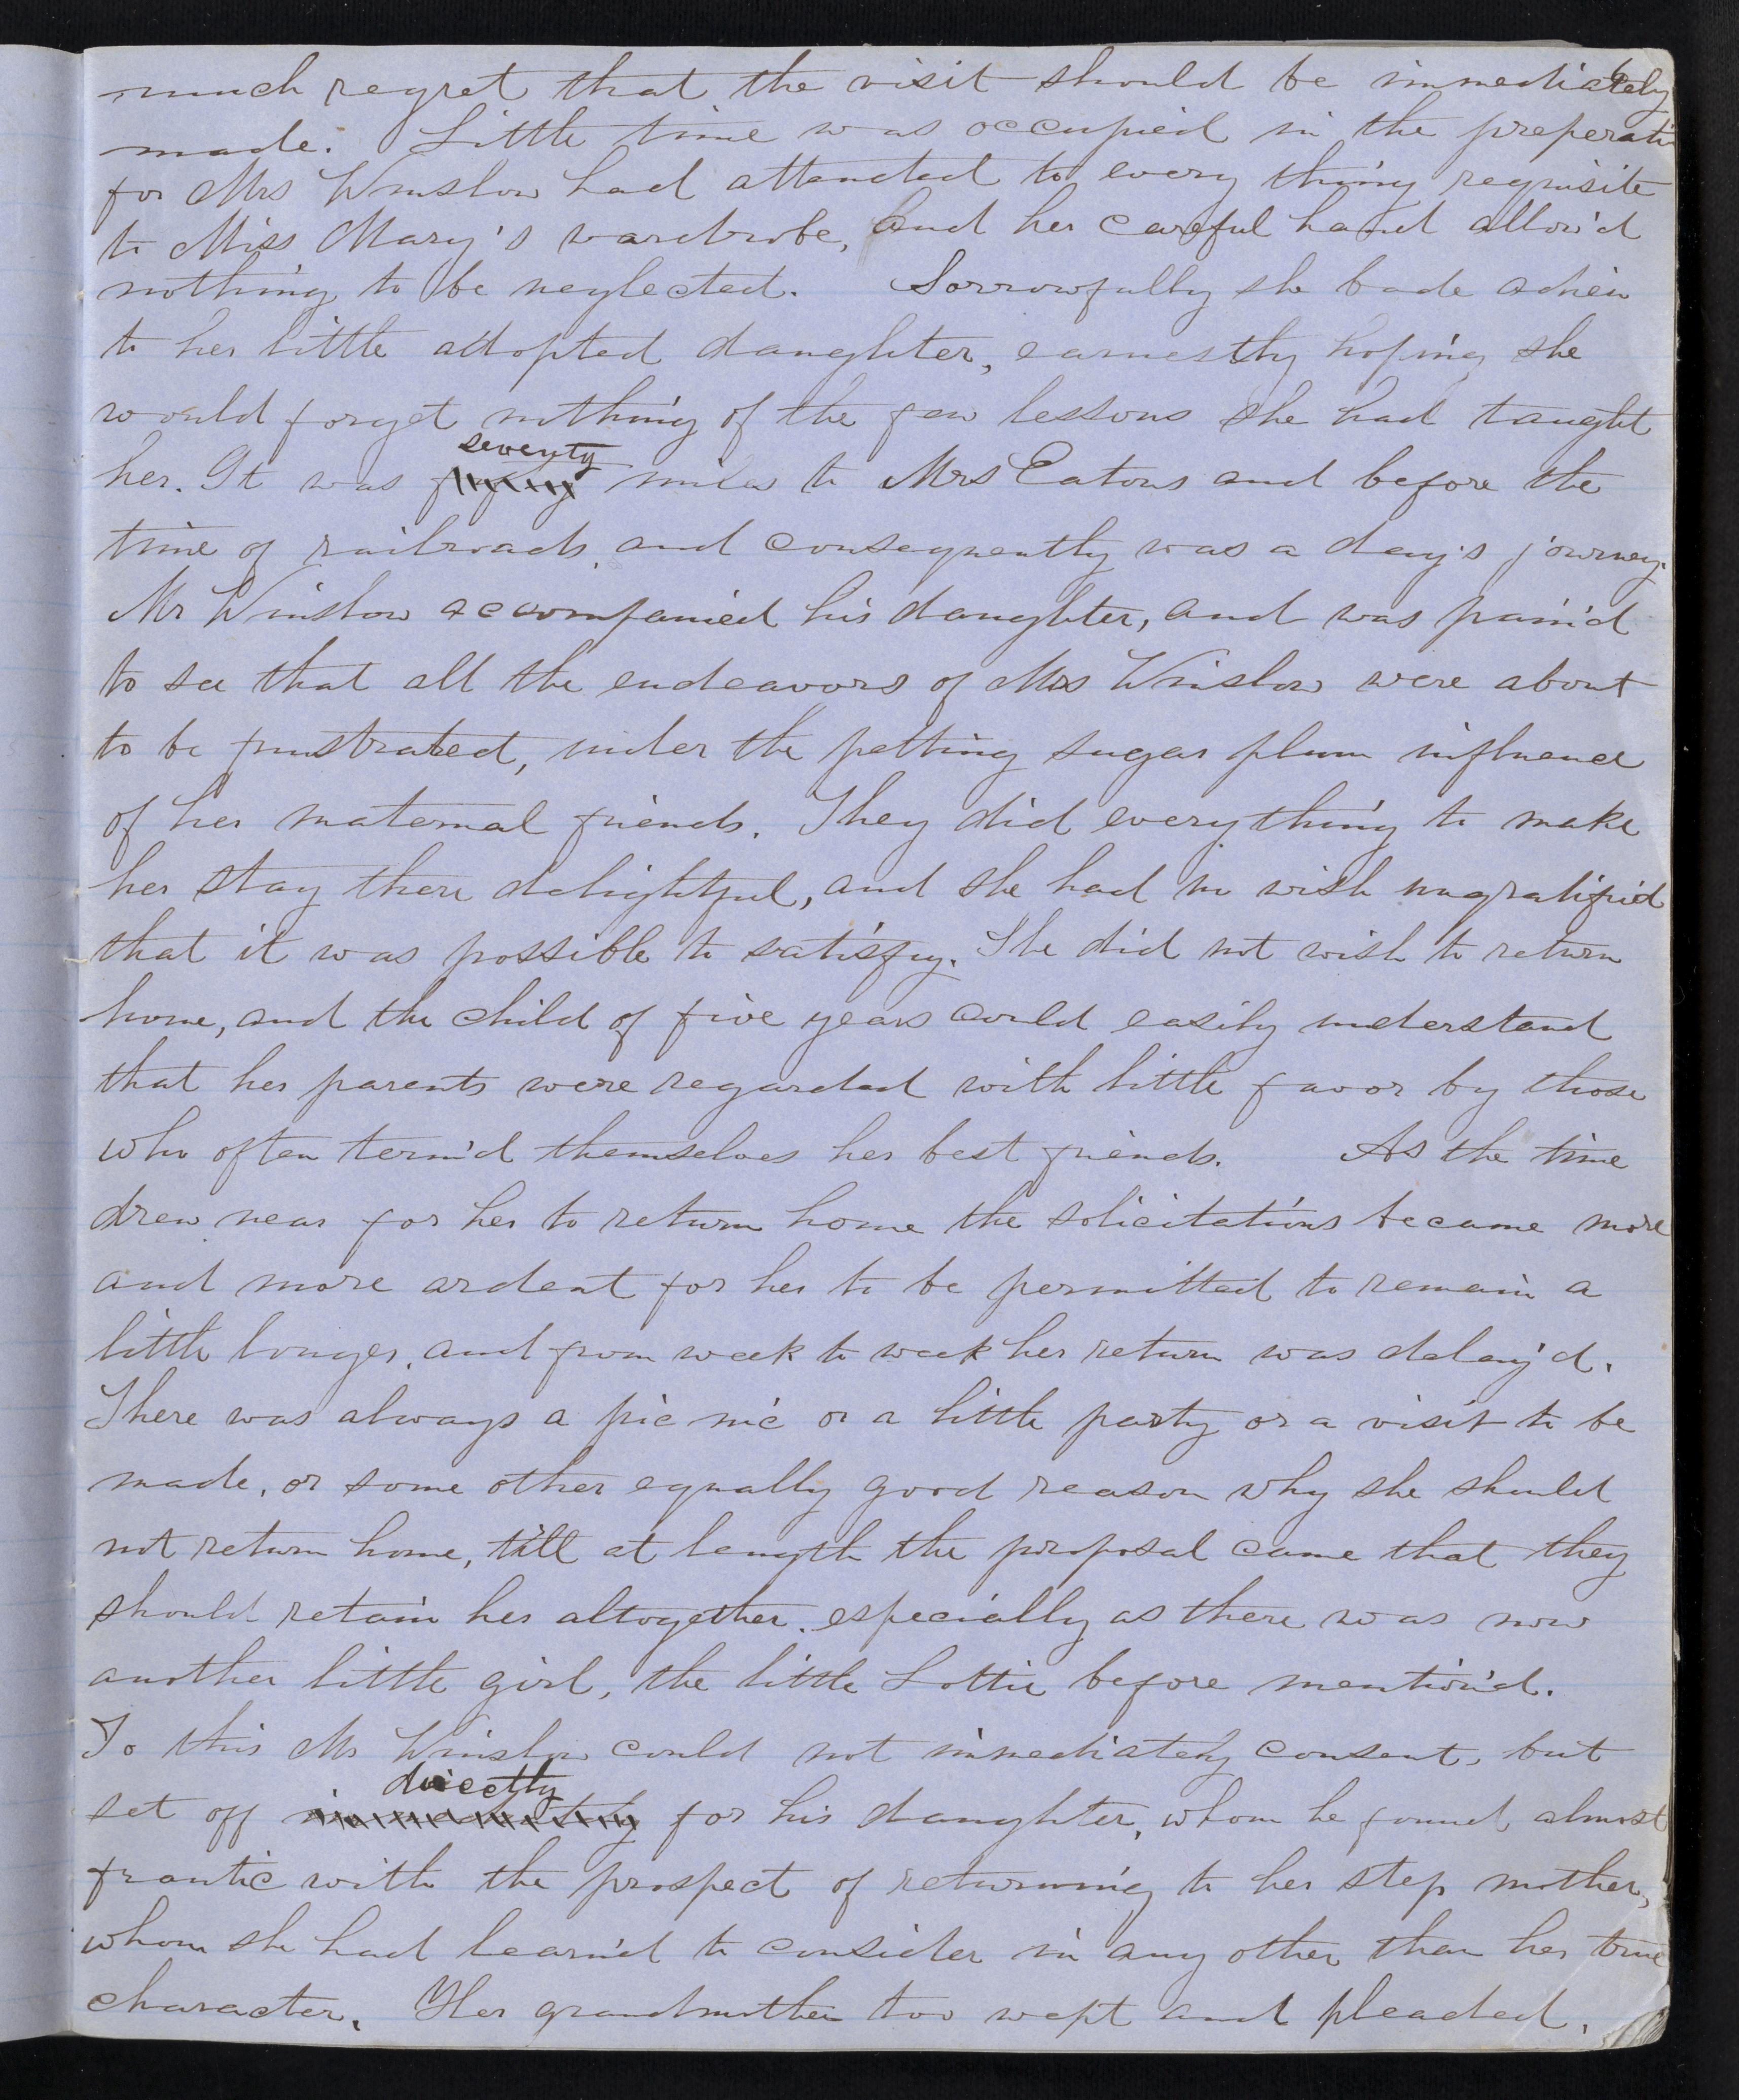 much regret that the visit should be immediately
made. Little time was occupied in the preperati
for Mrs Winslow had attended to every thing requisite
to Miss Mary's wardrobe, and her careful hand allow'd
nothing to be neglected. Sorrowfully she bade adieu
to her little adopted daughter, earnestly hoping she
would forget nothing of the few lessons she had taught
seventy
her. It was miles to Mrs Eatons and before the
time of railroads, and consequently was a day's journey.
Mr Winslow accompanied his daughter, and was pain'd
to see that all the endeavors of Mrs Winslow were about
to be frustrated, under the petting sugar plum influence
of her maternal friends. They did everything to make
her stay there delightful, and she had no wish ungratified
that it was possible to satisfy. She did not wish to return
home, and the child of five years could easily understand
that her parents were regarded with little favor by those
who often term'd themselves her best friends. As the time
drew near for her to return home the solicitations became more
and more ardent for her to be permitted to remain a
little longer, and from week to week her return was delay'd.
There was always a pic nic or a little party or a visit to be
made, or some other equally good reason why she should
not return home, till at length the proposal came that they
should retain her altogether, especially as there was now
another little girl, the little Lottie before mention'd.
To this Mr Winslow could not immediately consent, but
directly
set off immediately for his daughter, whom he found almost
frantic with the prospect of returning to her step mother,
whom she had learn'd to consider in any other than her true
character. Her grandmother too wept and pleaded.